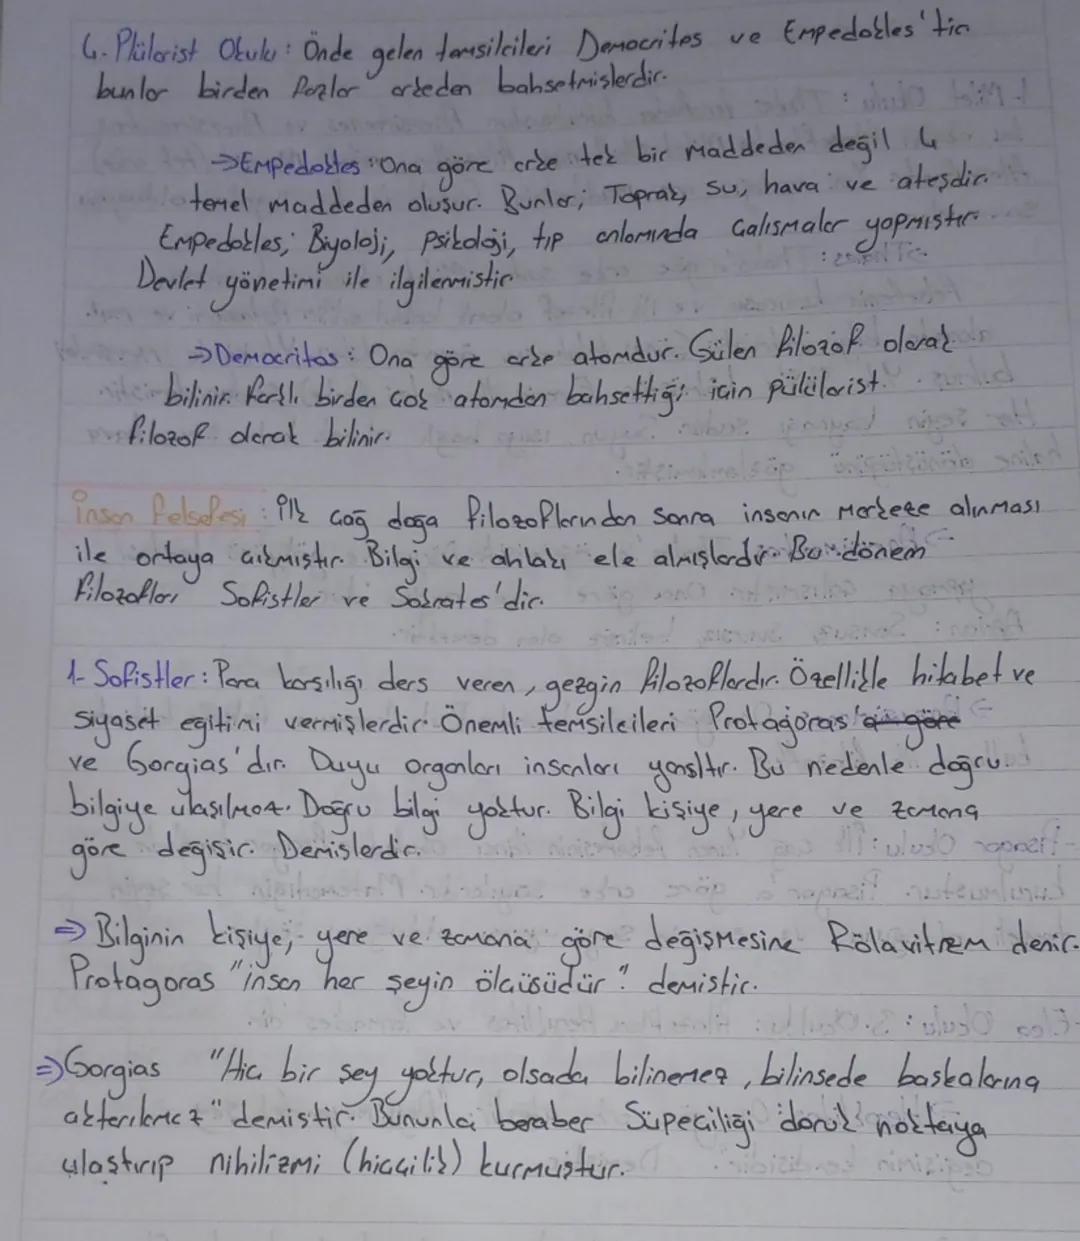 4- Plülarist Okulu: Önde gelen temsilcileri Democritos ve Empedokles'tir.
bunlar birden fazla arkeden bahsetmişlerdir.
→Empedokles: Ona göre arke tek bir maddeden değil 4
temel maddeden oluşur. Bunlar; Toprak, su, hava ve ateşdir.
Empedokles, Biyoloji, psikoloji, tıp anlamında çalışmalar yapmıştır.
Devlet yönetimi ile ilgilenmiştir
→Democritos: Ona göre arke atomdur. Gülen filozof olarak
bilinir. Farklı birden çok atomdan bahsettiği için pülülarist
filozof olarak bilinir.
insan felsefesi: İlk çağ doğa filozoflarından sonra insanın merkeze alınması
ile ortaya çıkmıştır. Bilgi ve ahlakı ele almışlardır. Bu dönem
filozofları Sofistler ve Sokrates'dir.
1- Sofistler: Para karşılığı ders veren, gezgin filozoflardır. Özellikle hitabet ve
siyaset eğitimi vermişlerdir. Önemli temsilcileri Protagoras'a göre
ve Gorgias'dır. Duyu organları insanları yanıltır. Bu nedenle doğru
bilgiye ulaşılmaz. Doğru bilgi yoktur. Bilgi kişiye, yere ve zamana
göre değişir. Demişlerdir.
⇒ Bilginin kişiye, yere ve zamana göre değişmesine Rölavitizm denir.
Protagoras "insan her şeyin ölçüsüdür". demiştir.
⇒Gorgias "Hiç bir şey yoktur, olsada bilinemez, bilinsede başkalarına
akterılamaz" demiştir. Bununla beraber Süpeciliği doruk noktaya
ulaştırıp nihilizmi (hiççilik) kurmuştur.